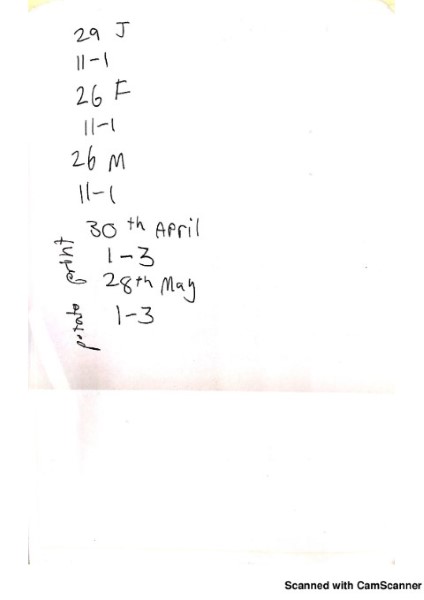 29 J
11-1
26 F
11-1
26 M
11-1
30th April
1-3
28th May
1-3
Scanned with CamScanner